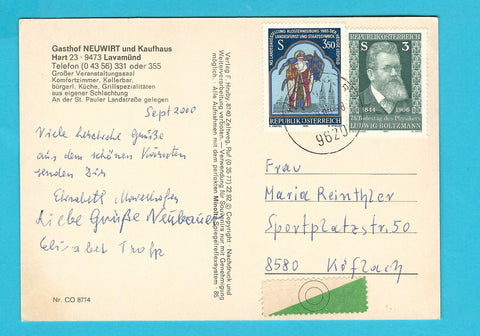 Gasthof NEUWIRT und Kaufhaus
Hart 23 · 9473 Lavamünd
Telefon (0 43 56) 331 oder 355
Großer Veranstaltungssaal
Komfortzimmer, Kellerbar,
bürgerl. Küche, Grillspezialitäten
aus eigener Schlachtung
An der St. Pauler Landstraße gelegen.
Sept 2000
Viele herzliche Grüße
aus dem schönen Kärnten
senden Dir
Elisabeth
Liebe Grüße Neubauer
Elisabet
Nr. CO 8774
Verlag F. Hruby, 8740 Zeltweg, Ruf (0 35 77) 22 92 © Copyright · Nachdruck und
Weiterverarbeitung verboten. · Verwendung für Souvenirs nur mit Genehmigung
möglich. Alle Aufnahmen mit dem perfekten Minolta Spiegelreflexsystem · 85
S 350
REPUBLIK ÖSTERREICH
S 3
1844 1906
75. Todestag des Physikers
LUDWIG BOLTZMANN
REPUBLIK ÖSTERREICH
9620
Frau
Maria Reinthler
Sportplatzstr. 50
8580 Köflach